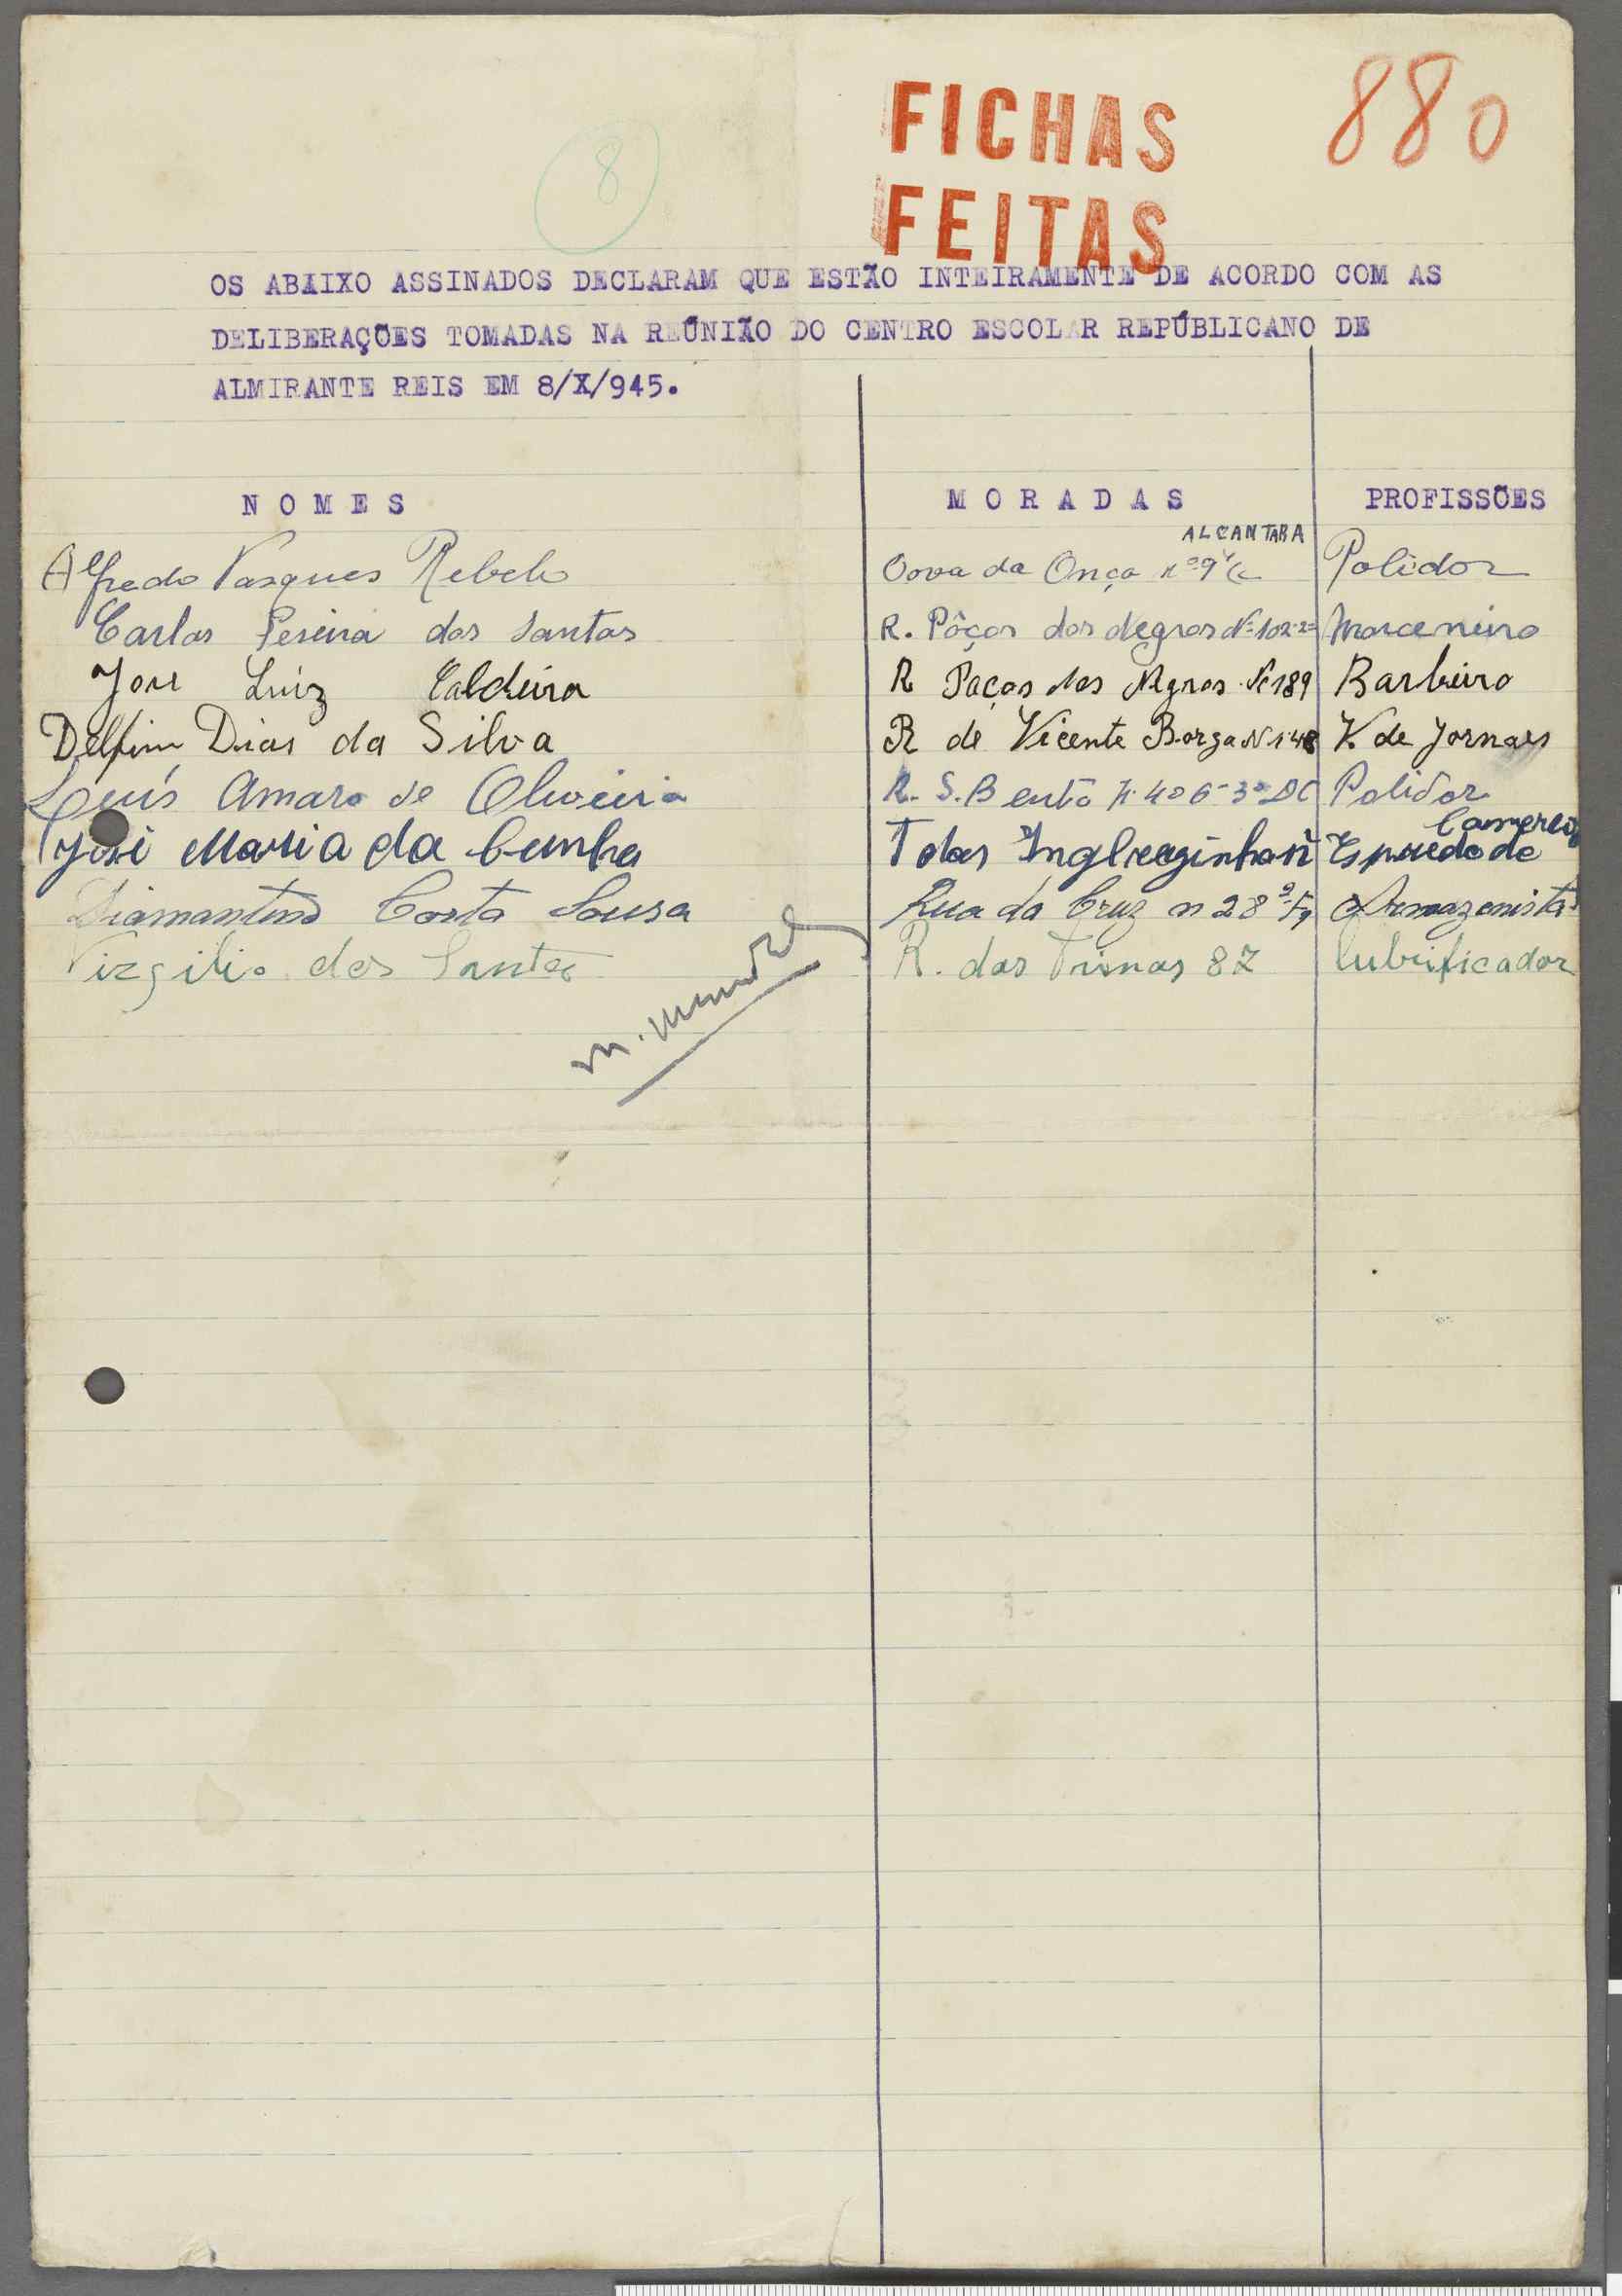 880
FICHAS
FEITAS
8
OS ABAIXO ASSINADOS DECLARAM QUE ESTÃO INTEIRAMENTE DE ACORDO COM AS
DELIBERAÇÕES TOMADAS NA REÚNIÃO DO CENTRO ESCOLAR REPÚBLICANO DE
ALMIRANTE REIS EM 8/X/945.
NOMES MORADAS PROFISSÕES
ALCANTARA
Alfredo Vasques Rebelo Cova da Onça nº 9 Polidor
Carlos Pereira dos Santos R. Pôços dos Negros Nº 102-2º Marceneiro
José Luiz Caldeira R Paços dos Negros Nº 189 Barbeiro
Delfim Dias da Silva R de Vicente Borga N 148 V. de Jornaes
Luís Amaro de Oliveira R. S. Bento Nº 406-3º Polidor
Comercio
José Maria da Cunha T das de
Diamantino Costa Sousa Rua da Cruz n 28 Armazenista
Virgilio dos Santos R. das Trinas 87 lubrificador